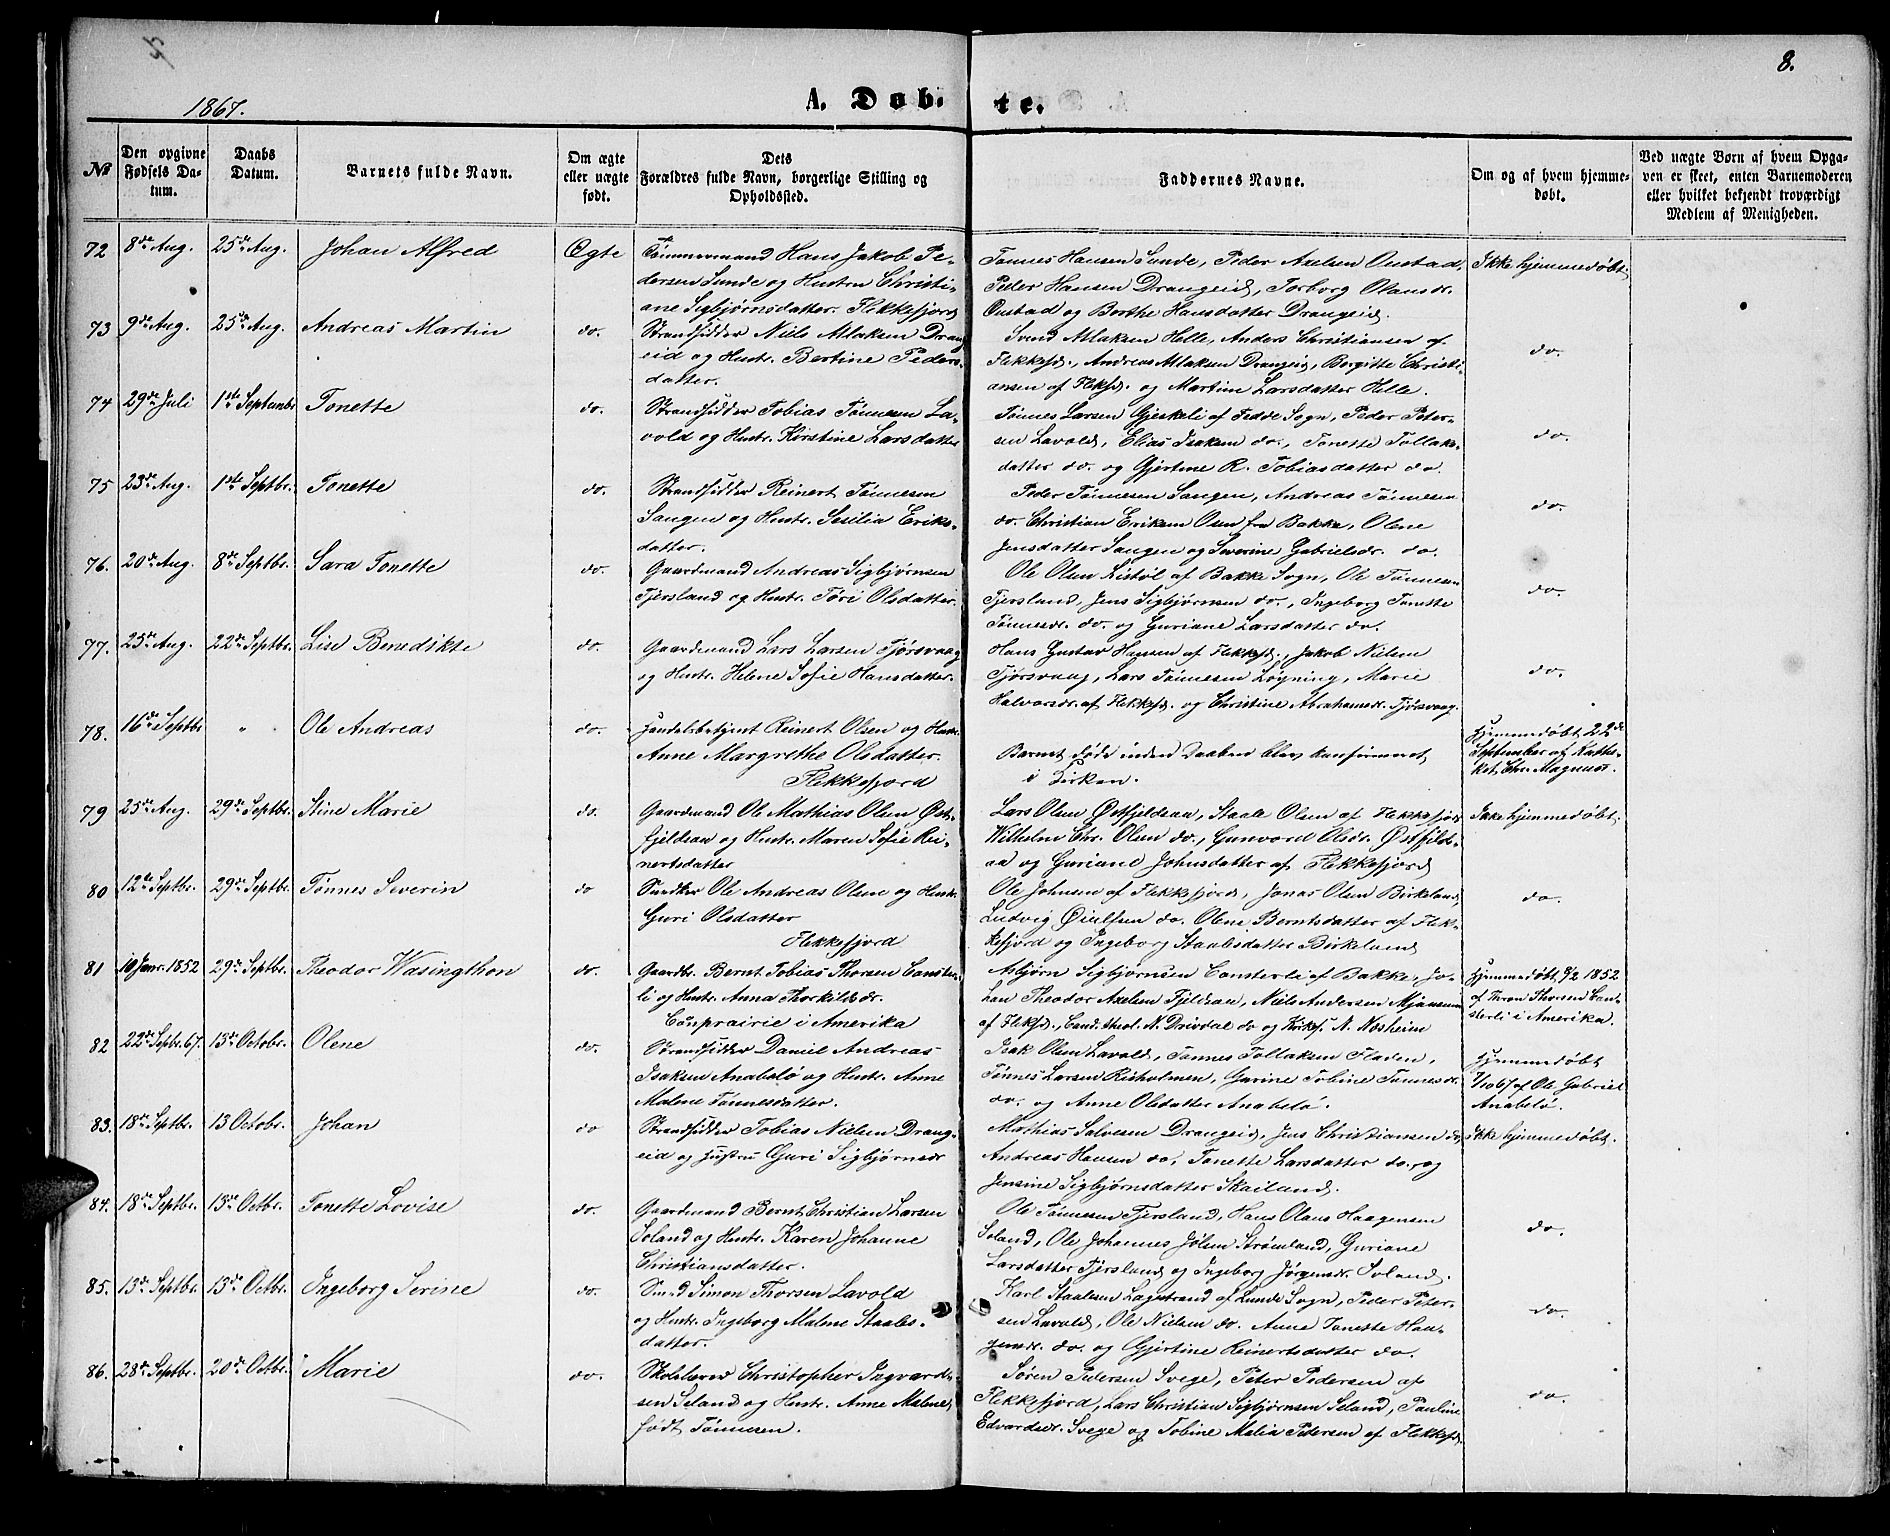 8.
1867.
A. Døb- te.
No
Den opgivne Fødsels Datum.
Daabs Datum.
Barnets fulde Navn.
Om ægte eller uægte født.
Dets Forældres fulde Navn, borgerlige Stilling og Opholdssted.
Faddernes Navne.
Om og af hvem hjemmedøbt.
Ved uægte Børn af hvem Opgaven er skeet, enten Barnemoderen eller hvilket bekjendt troværdigt Medlem af Menigheden.
72 8de Aug. 25de Aug. Johan Alfred Ægte
Tømmermand Hans Jakob Pe-
dersen Sunde og Hustru Christi-
ane Sigbjørnsdatter. Flekkefjord
Tønnes Hansen Sunde, Peder Axelsen Onstad,
Peder Hansen Drangeid, Torborg Olausdr.
Onstad og Berthe Hansdatter Drangeid.
Ikke hjemmedøbt.
73 9de Aug. 25de Aug. Andreas Martin do.
Strandsidder Niels Atlaksen Drang
eid og Hustr. Bertine Peders-
datter.
Svend Atlaksen Helle, Anders Christiansen af
Flekkefd., Andreas Atlaksen Drangeid, Birgitte Christi-
ansen af Flekfd. og Martine Larsdatter Helle.
do.
74 29de Juli 1ste Septembr Tonette do.
Strandsidder Tobias Tønnesen La-
vold og Hustr. Kirstine Larsdatter
Tønnes Larsen Gjeskeli af Fedde Sogn, Peder Peter-
sen Lavold, Elias Isaksen do., Tonette Tollaks-
datter do. og Gjertine R. Tobiasdatter do.
do.
75 23de Aug. 1ste Septbr. Tonette do.
Strandsidder Reinert Tønnesen
Sangen og Hustr. Sesilia Eriks-
datter.
Peder Tønnesen Sangen, Andreas Tønnesen
do. Christian Eriksen Osen fra Bakke, Olene
Jensdatter Sangen og Severine Gabrielsdr. do.
do.
76. 20de Aug. 8de Septbr. Sara Tonette do.
Gaardmand Andreas Sigbjørnsen
Tjersland og Hustr. Tøri Olsdatter.
Ole Olsen Listøl af Bakke Sogn, Ole Tønnesen
Tjersland, Jens Sigbjørnsen do., Ingeborg Tonette
Tønnesdr. do. og Guriane Larsdatter do.
do.
77. 25de Aug. 22de Septbr. Lise Benedikte do.
Gaardmand Lars Larsen Tjørsvaag
og Hustr. Helene Sofie Hansdatter.
Hans Gustav Hansen af Flekkefd., Jakob Nielsen
Tjørsvaag, Lars Tønnesen Løgning, Marie
Halvorsdr. af Flekkefd. og Christine Abrahamsdr. Tjørsvaag.
do.
78. 16de Septbr " Ole Andreas do.
Handelsbetjent Reinert Olsen og Hustr.
Anne Margrethe Olsdatter.
Flekkefjord
Barnet døde inden Daaben blev konfirmeret
i Kirken.
Hjemmedøbt 22de
September af Kathe-
ket, Chr. Magnus.
79 25de Aug. 29de Septbr. Stine Marie do.
Gaardmand Ole Mathias Olsen Øst-
fjeldsaa og Hustr. Maren Sofie Rei-
nertsdatter
Lars Olsen Østfjeldsaa, Staale Olsen af Flekkefjord
Wilhelm Chr. Olsen do., Gunvord Olsdr. Østfjelds-
aa og Guriane Johnsdatter af Flekkefjord
Ikke hjemmedøbt.
80 12te Septbr. 29de Septbr. Tønnes Severin do
Snedker Ole Andreas Olsen og Hustr.
Guri Olsdatter
Flekkefjord
Ole Johnsen af Flekkefjord, Jonas Olsen Birkeland,
Ludvig Øiulfsen do. Olene Berntsdatter af Flek-
kefjord og Ingeborg Staalesdatter Birkeland
do.
81 10 Janr. 1852 29de Septbr. Theodor Wasingthon do.
Gaardbr. Bernt Tobias Thorsen Eanster-
li og Hustr. Anna Thorkildsdr.
i Amerika
Asbjørn Sigbjørnsen Eansterli af Bakke, Jo-
han Theodor Axelsen Fjeldsaa, Niels Andersen
af Flekfd., Cand. theol. N. Drivdal do og Kirkes. N. Nøsheim
Hjemmedøbt 8/2 1852
af Thron Thorsen Ean-
sterli i Amerika.
82 22de Septbr. 67. 13de Octobr. Olene do.
Strandsidder Daniel Andreas
Isaksen Anabelø og Hustr. Anne
Malene Tønnesdatter.
Isak Olsen Lavold, Tønnes Tollaksen Fladen,
Tønnes Larsen Risholmen, Gurine Tobine Tønnesdr.
do. og Anne Olsdatter Anabelø.
Hjemmedøbt
7/10 67 af Ole Gabriel
Anabelø.
83. 18de Septbr. 13 Octobr. Johan do
Strandsidder Tobias Nielsen Drang-
eid og Hustru Guri Sigbjørnsdr
Mathias Salvesen Drangeid, Jens Christiansen do,
Andreas Hansen do, Tonette Larsdatter do. og
Jensine Sigbjørnsdatter Skailand.
Ikke hjemmedøbt.
84. 18de Septbr. 13de Octbr. Tonette Lovise do.
Gaardmand Bernt Christian Larsen
Soland og Hustr. Karen Johanne
Christiansdatter.
Ole Tønnesen Tjersland, Hans Olaus Haagensen
Soland, Ole Johannes Jølsen Strømland, Guriane
Larsdatter Tjersland og Ingeborg Jørgensdr. Soland.
do.
85. 13de Septbr. 13de Octbr. Ingeborg Serine do.
Smed Simon Thorsen Lavold
og Hustr. Ingeborg Malene Staales-
datter.
Karl Staalesen Lagestrand af Lunde Sogn, Peder Peter-
sen Lavold, Ole Nielsen do. Anne Tonette Haa-
gensdr. do. og Gjertine Reinertsdatter do.
do.
86. 28de Septbr. 20de Octbr. Marie do.
Skolelærer Christopher Ingvard-
sen Seland og Hustr. Anne Malene,
født Tønnesen.
Søren Petersen Svege, Peter Pedersen af
Flekkefjord, Lars Christian Sigbjørnsen Seland, Pauline
Edvardsdr. Svege og Tobine Malia Petersen af Flekkefd.
do.